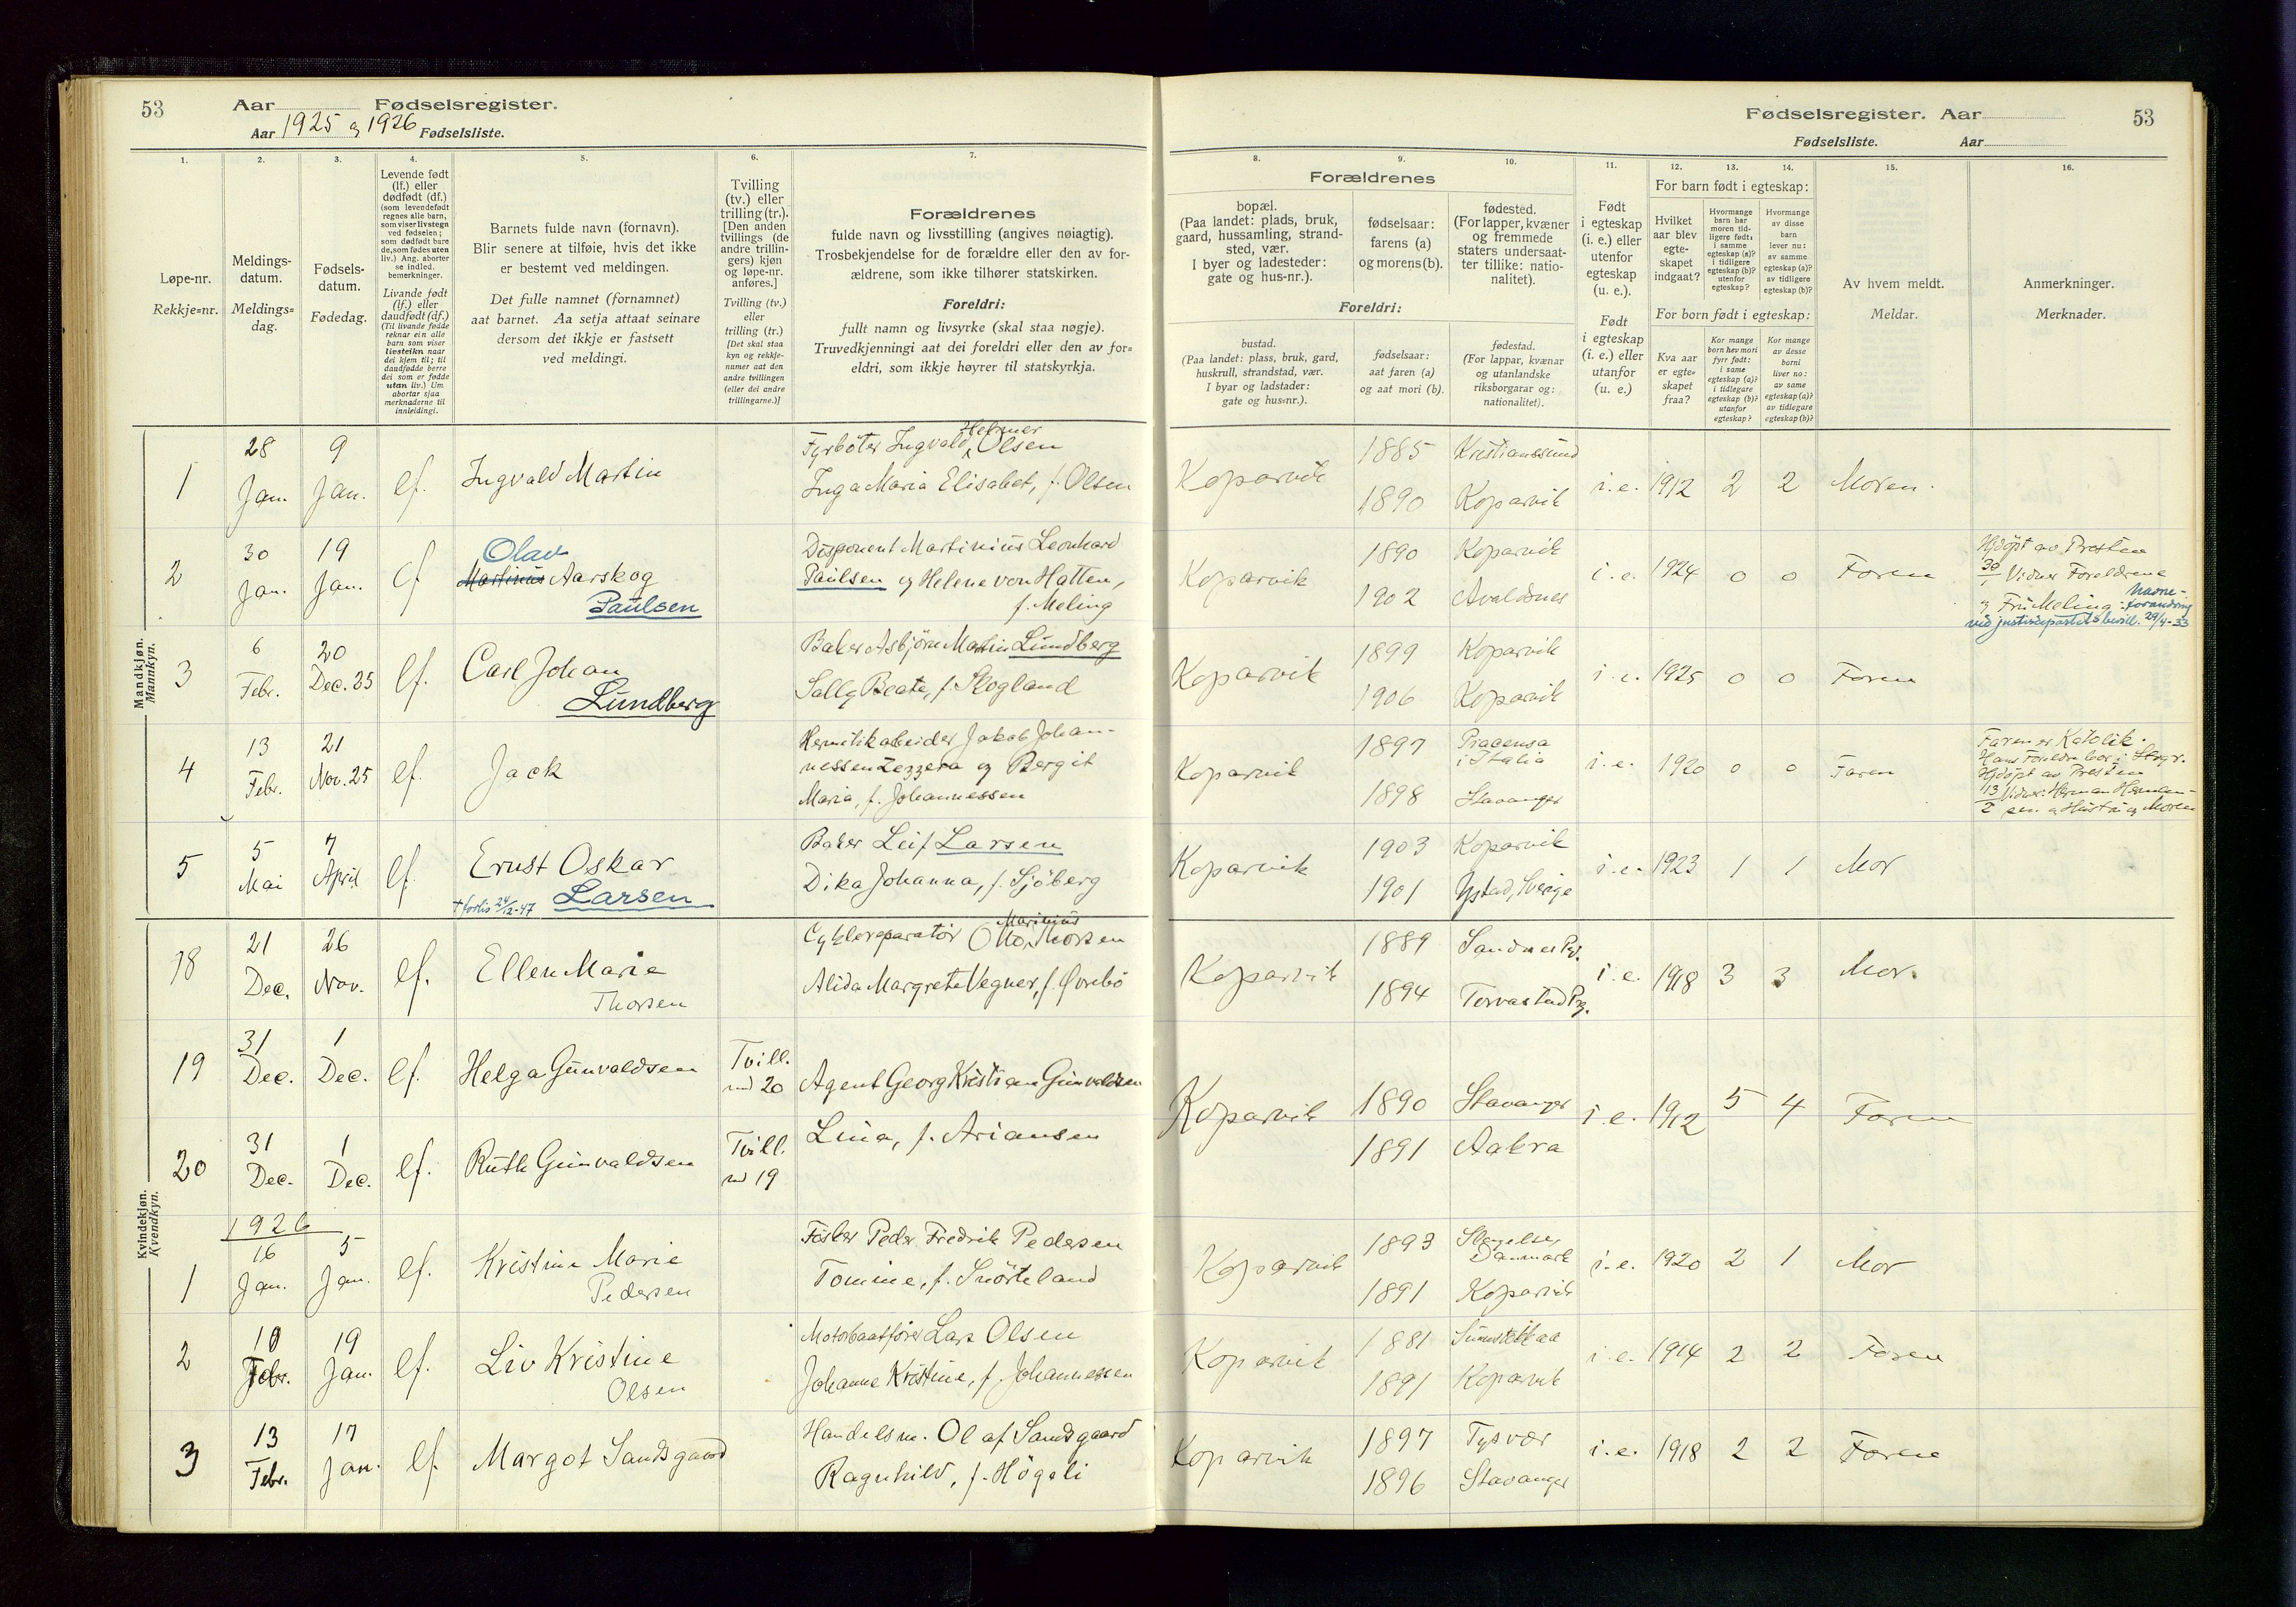 53
Aar Fødselsregister.
Aar 1925 og 1926 Fødselsliste.
1.
2.
3.
4.
5.
6.
7.
Løpe-nr.
Rekkje-nr.
Meldings-
datum.
Meldings-
dag.
Fødsels-
datum.
Fødedag.
Levende født
(lf.) eller
dødfødt (df.)
(som levendefødt
regnes alle barn,
som viser livstegn
ved fødselen;
som dødfødt bare
de, som fødes uten
liv.) Ang. aborter
se indled.
bemerkninger.
Livande født
(lf.) eller
daudfødt (df.)
(Til livande fødde
reknar ein alle
barn som viser
livsteikn naar
dei kjem til; til
daudfødde berre
dei som er fødde
utan liv.) Um
abortar sjaa
merknaderne til
innleidingi.
Barnets fulde navn (fornavn).
Blir senere at tilføie, hvis det ikke
er bestemt ved meldingen.
Det fulle namnet (fornamnet)
aat barnet. Aa setja attaat seinare
dersom det ikkje er fastsett
ved meldingi.
Tvilling
(tv.) eller
trilling (tr.).
[Den anden
tvillings (de
andre trillin-
gers) kjøn
og løpe-nr.
anføres.]
Tvilling (tv.)
eller
trilling (tr.)
[Det skal staa
kyn og rekkje-
numer aat den
andre tvillingen
(eller dei andre
trillingarne.)]
Forældrenes
fulde navn og livsstilling (angives nøiagtig).
Trosbekjendelse for de forældre eller den av for-
ældrene, som ikke tilhører statskirken.
Foreldri:
fullt namn og livsyrke (skal staa nøgje).
Truvedkjenningi aat dei foreldri eller den av for-
eldri, som ikkje høyrer til statskyrkja.
Mandkjøn.
Mannkyn.
1
28
Jan.
9
Jan.
lf.
Ingvald Martin
Helmer
Fyrböter Ingvald Olsen
Inga Maria Elisabet, f. Olsen
2
30
Jan.
19
Jan.
lf
Olav
Martinius Aarskog
Paulsen
Disponent Martinius Leonhard
Paulsen og Helene von Hatten,
f. Meling
3
6
Febr.
20
Dec. 25
lf.
Carl Johan
Lundberg
Baker Asbjörn Martin Lundberg
Sally Beate, f. Skogland
4
13
Febr.
21
Nov. 25
lf.
Jack
Hermetikarbeider Jakob Johan-
nessen Zezzera og Bergit
Maria, f. Johannessen
5
5
Mai
7
April
lf.
Ernst Oskar
† forlis 24/12-47 Larsen
Baker Leif Larsen
Dika Johanna, f. Sjöberg
Kvindekjøn.
Kvendkyn.
18
21
Dec.
26
Nov.
lf.
Ellen Marie
Thorsen
Marinius
Cykkelreparatör Otto Thorsen
Alida Margrete Vegner, f. Övrebö
19
31
Dec.
1
Dec.
lf.
Helga Gunvaldsen
Tvill.
med 20
Agent Georg Kristian Gunvaldsen
Lina, f. Ariansen
20
31
Dec.
1
Dec.
lf.
Ruth Gunvaldsen
Tvill.
med 19
1926
1
16
Jan.
5
Jan.
lf.
Kristine Marie
Pedersen
Fisker Peder Fredrik Pedersen
Tomine, f. Snörteland
2
10
Febr.
19
Jan.
lf.
Liv Kristine
Olsen
Motorbaatförer Lars Olsen
Johanne Kristine, f. Johannessen
3
13
Febr.
17
Jan.
lf.
Margot Sandsgaard
Handelsm. Olaf Sandsgaard
Ragnhild, f. Högeli
Fødselsregister. Aar
53
Fødselsliste. Aar
8.
9.
10.
11.
12.
13.
14.
15.
16.
Forældrenes
bopæl.
(Paa landet: plads, bruk,
gaard, hussamling, strand-
sted, vær.
I byer og ladesteder:
gate og hus-nr.).
fødselsaar:
farens (a)
og morens (b).
fødested.
(For lapper, kvæner
og fremmede
staters undersaat-
ter tillike: natio-
nalitet).
Foreldri:
bustad.
(Paa landet: plass, bruk, gard,
huskrull, strandstad, vær.
I byar og ladstader:
gate og hus-nr.).
fødselsaar:
aat faren (a)
og aat mori (b).
fødestad.
(For lappar, kvænar
og utanlandske
riksborgarar og:
nationalitet).
Født
i egteskap
(i. e.) eller
utenfor
egteskap
(u. e.).
Født
i egteskap
(i. e.) eller
utanfor
(u. e.)
For barn født i egteskap:
Hvilket
aar blev
egte-
skapet
indgaat?
Hvormange
barn har
moren tid-
ligere født:
i samme
egteskap (a)?
i tidligere
egteskap (b)?
utenfor
egteskap?
Hvormange
av disse
barn
lever nu:
av samme
egteskap (a)?
av tidligere
egteskap (b)?
For born født i egteskap:
Kva aar
er egte-
skapet
fraa?
Kor mange
born hev mori
fyrr født:
i same
egteskap (a)?
i tidlegare
egteskap (b)?
utanfor
egteskap?
Kor mange
av desse
borni
liver no:
av same
egteskap (a)?
av tidlegare
egteskap (b)?
Av hvem meldt.
Meldar.
Anmerkninger.
Merknader.
Koparvik
1885
1890
Kristianssund
Koparvik
i. e.
1912
2
2
Moren.
Koparvik
1890
1902
Koparvik
Avaldsnes
i. e.
1924
0
0
Faren
Hjdöpt av Presten
30/1 Vidner Foreldrene
og Fru Meling: Navne-
forandring
ved justisdepartets bevill. 29/4-33
Koparvik
1899
1906
Koparvik
Koparvik
i. e.
1925
0
0
Faren
Koparvik
1897
1898
Piacensa
i Italia
Stavanger
i. e.
1920
0
0
Faren
Faren er Katolik.
Hans Foreldre bor i Stvgr.
Hjdöpt av Presten
13/2 Vidner: Herman Herman-
sen og Hustru og Moren
Koparvik
1903
1901
Koparvik
Ystad, Sverige
i. e.
1923
1
1
Mor
Koparvik
1889
1894
Sandnes Pg.
Torvastad Prg.
i. e.
1918
3
3
Mor.
Koparvik
1890
1891
Stavanger
Aakra
i. e.
1912
5
4
Faren
Koparvik
1893
1891
Slagelse,
Danmark
Koparvik
i. e.
1920
2
1
Mor
Koparvik
1881
1891
Koparvik
i. e.
1914
2
2
Faren
Koparvik
1897
1896
Tysvær
Stavanger
i. e.
1918
2
2
Faren